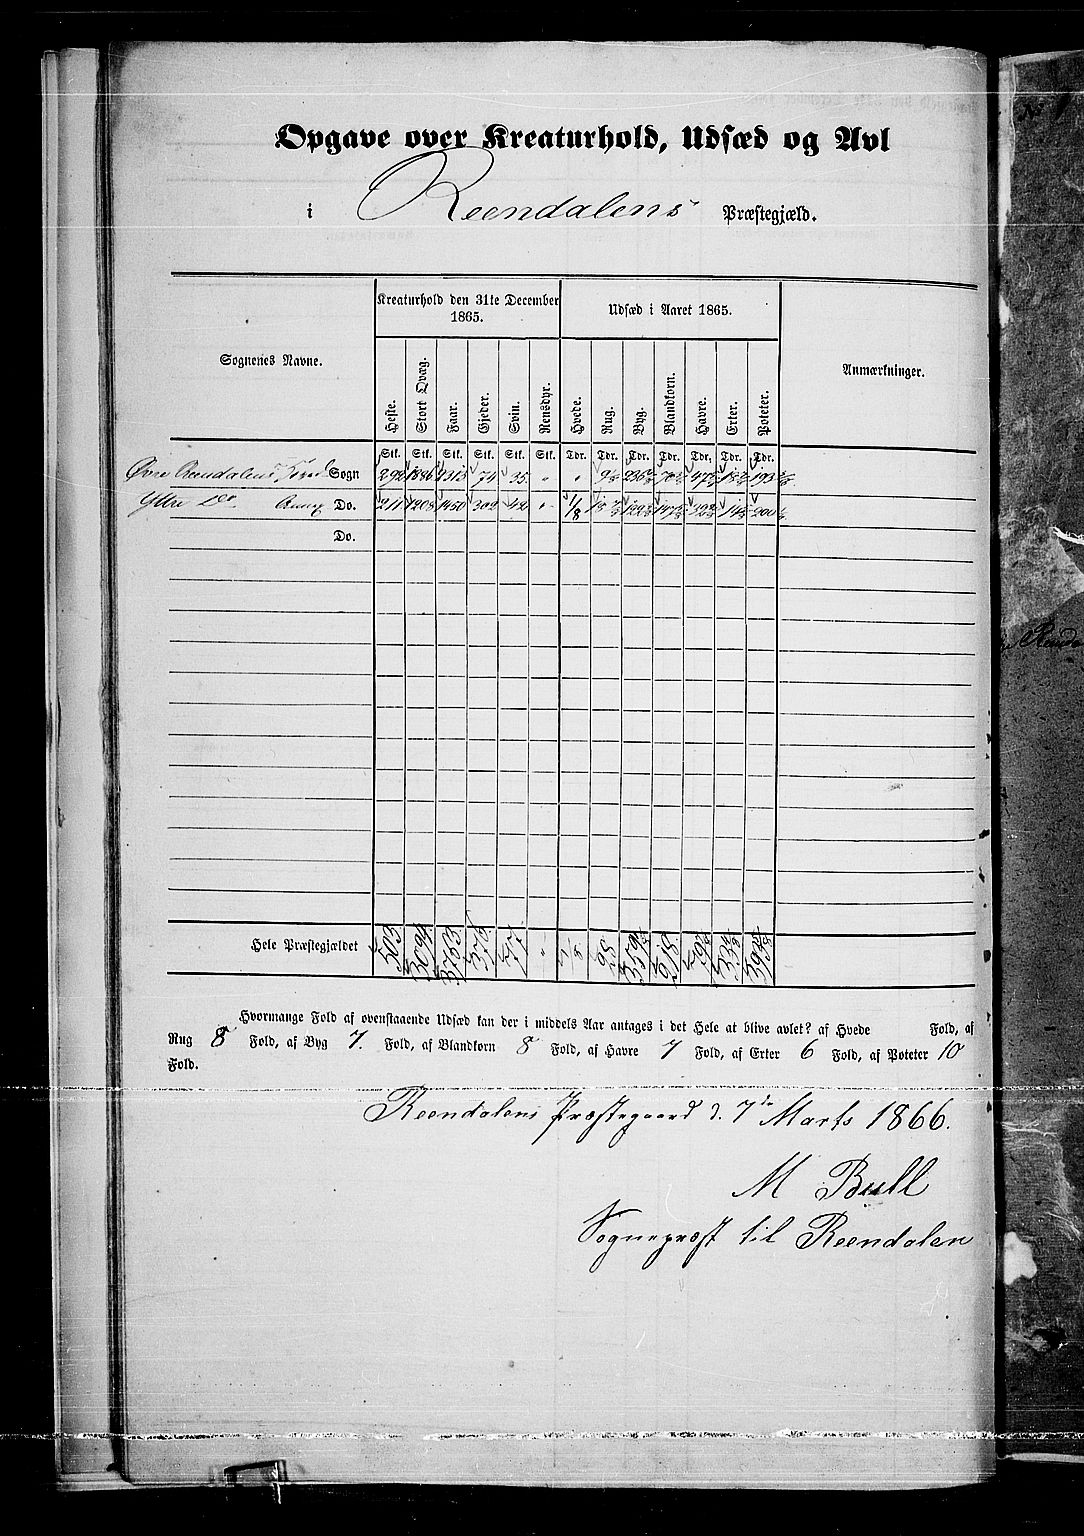 Opgave over Kreaturhold, Udsæd og Avl
i Reendalens Præstegjæld.
Sognenes Navne.
Kreaturhold den 31te December 1865.
Udsæd i Aaret 1865.
Anmærkninger.
Heste. Stort Qvæg. Faar. Gjeder. Svin. Rensdyr. Hvede. Rug. Byg. Blandkorn. Havre. Erter. Poteter.
Stk. Stk. Stk. Stk. Stk. Stk. Tdr. Tdr. Tdr. Tdr. Tdr. Tdr. Tdr.
Øvre Reendalens Sogn 292 1886 2313 74 35 " "
Ytre Do. Annex Do. 211 1208 1450 302 42 " 1/8
Do.
Hele Præstegjældet 503 3094 3763 376 77 " 1/8
Hvormange Fold af ovenstaaende Udsæd kan der i middels Aar antages i det Hele at blive avlet? af Hvede Fold, af
Rug 8 Fold, af Byg 7. Fold, af Blandkorn 8 Fold, af Havre 7 Fold, af Erter 6 Fold, af Poteter 10
Fold.
Reendalens Præstegaard d. 7de Marts 1866.
M Bull
Sognepræst til Reendalen